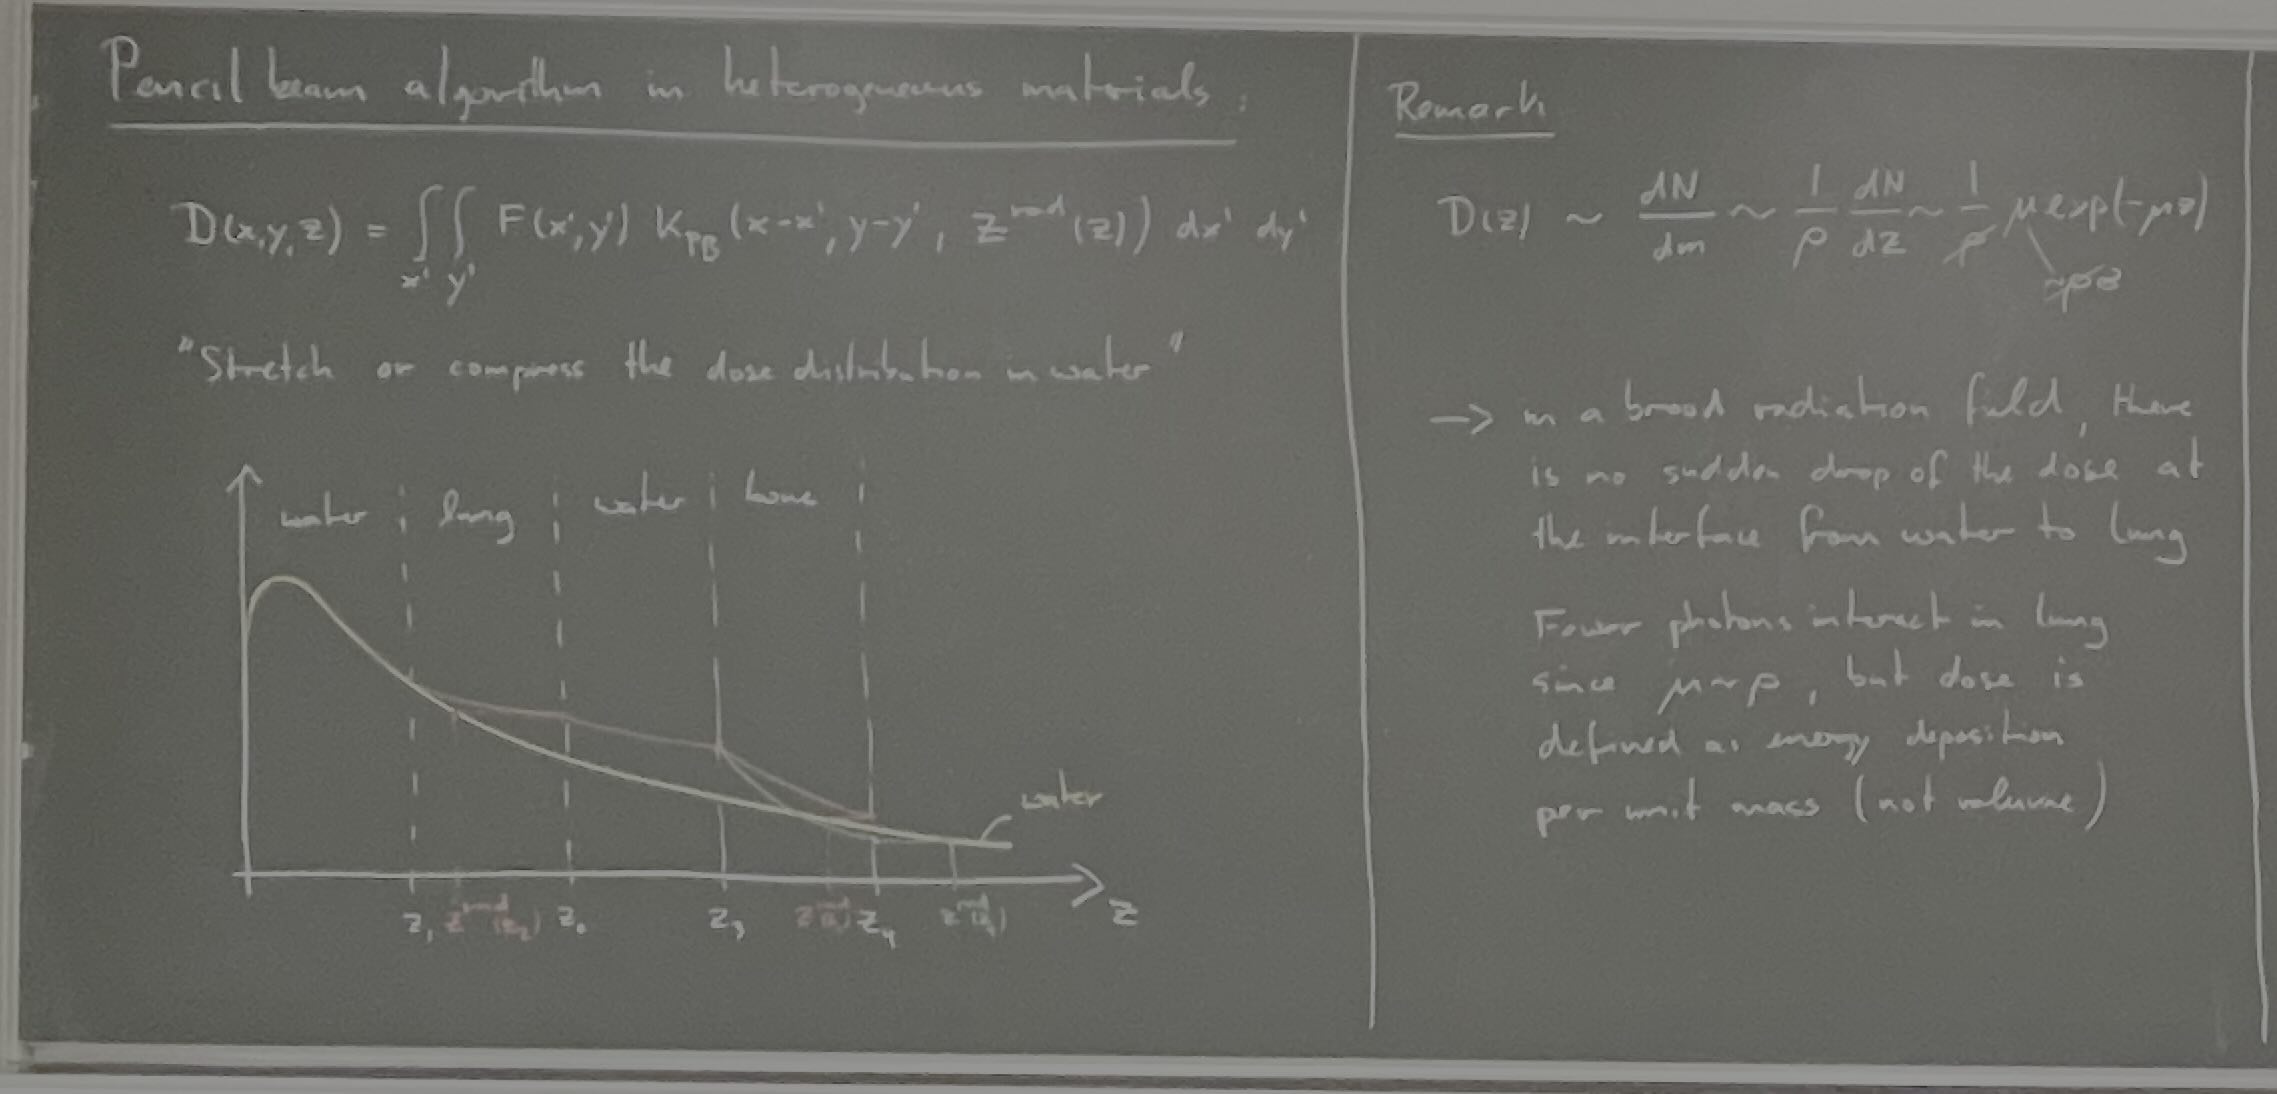 Pencil beam algorithm in heterogeneous materials:
D(x,y,z) = ∫∫ F(x',y') K_PB (x-x', y-y', z^rad(z)) dx' dy'
x' y'
"Stretch or compress the dose distribution in water"
water lung water bone
water
z₁ z^rad(z₂) z₂ z₃ z^rad z₄ z^rad(z₄) z
Remark
D(z) ~ dN/dm ~ 1/ρ dN/dz ~ 1/ρ μ exp(-μz)
~ρz
→ in a broad radiation field, there
is no sudden drop of the dose at
the interface from water to lung
Fewer photons interact in lung
since μ~ρ, but dose is
defined as energy deposition
per unit mass (not volume)